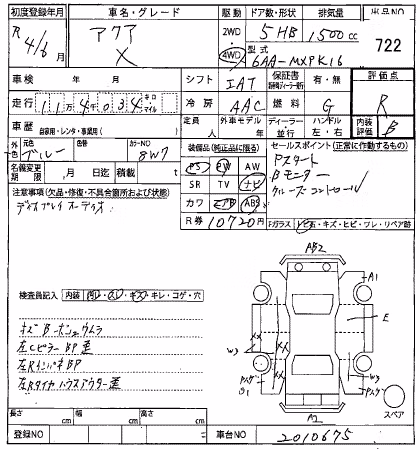 初度登録年月 車名・グレード 駆動 ドア数・形状 排気量 出品NO
R 4/6 月 アクア X 2WD 4WD 5HB 1500cc 722
型式 6AA-MXPK16
車検 年 月 シフト IAT 保証書 有・無 評価点
走行 11万4千034 キロ マイル 冷房 AAC 燃料 G R
車歴 自家用・レンタ・事業用( ) 定員 人 外車モデル 年 ディーラー 並行 ハンドル 左・右 内装評価 B
外色 元色 ブルー 色替 カラーNO 8W7
装備品(純正品に限る) セールスポイント(正常に作動するもの)
名義変更期限 月 日迄 積載 t
PS PW AW
SR TV ナビ
カワ エアB ABS
Pスタート
Bモニター
クルーズコントロール
注意事項(欠品・修復・不具合箇所および状態)
R券 10720円 Fガラス
石・キズ・ヒビ・ワレ・リペア跡
ディスプレイオーディオ
検査員記入 内装 キレ・コゲ・穴
キズ
左Cピラー BP
左Rインパネ BP
左Rタイヤハウスアウター
AB2
A1
E
W3
W3
スペア
長さ cm 幅 cm 高さ cm
登録NO 車台NO 2010675